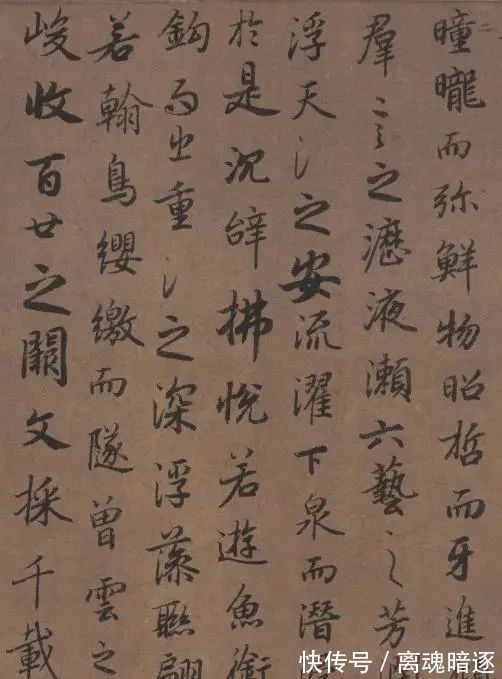 曈曨而弥鮮物昭晢而牙進
羣言之瀝液瀨六藝之芳
浮天淵之安流濯下泉而潛
於是沈辞拂悅若遊魚銜
鈎而出重淵之深浮藻聯翩
若翰鳥纓繳而隧曾雲之
峻收百世之闕文採千載
快传号/离魂暗逐